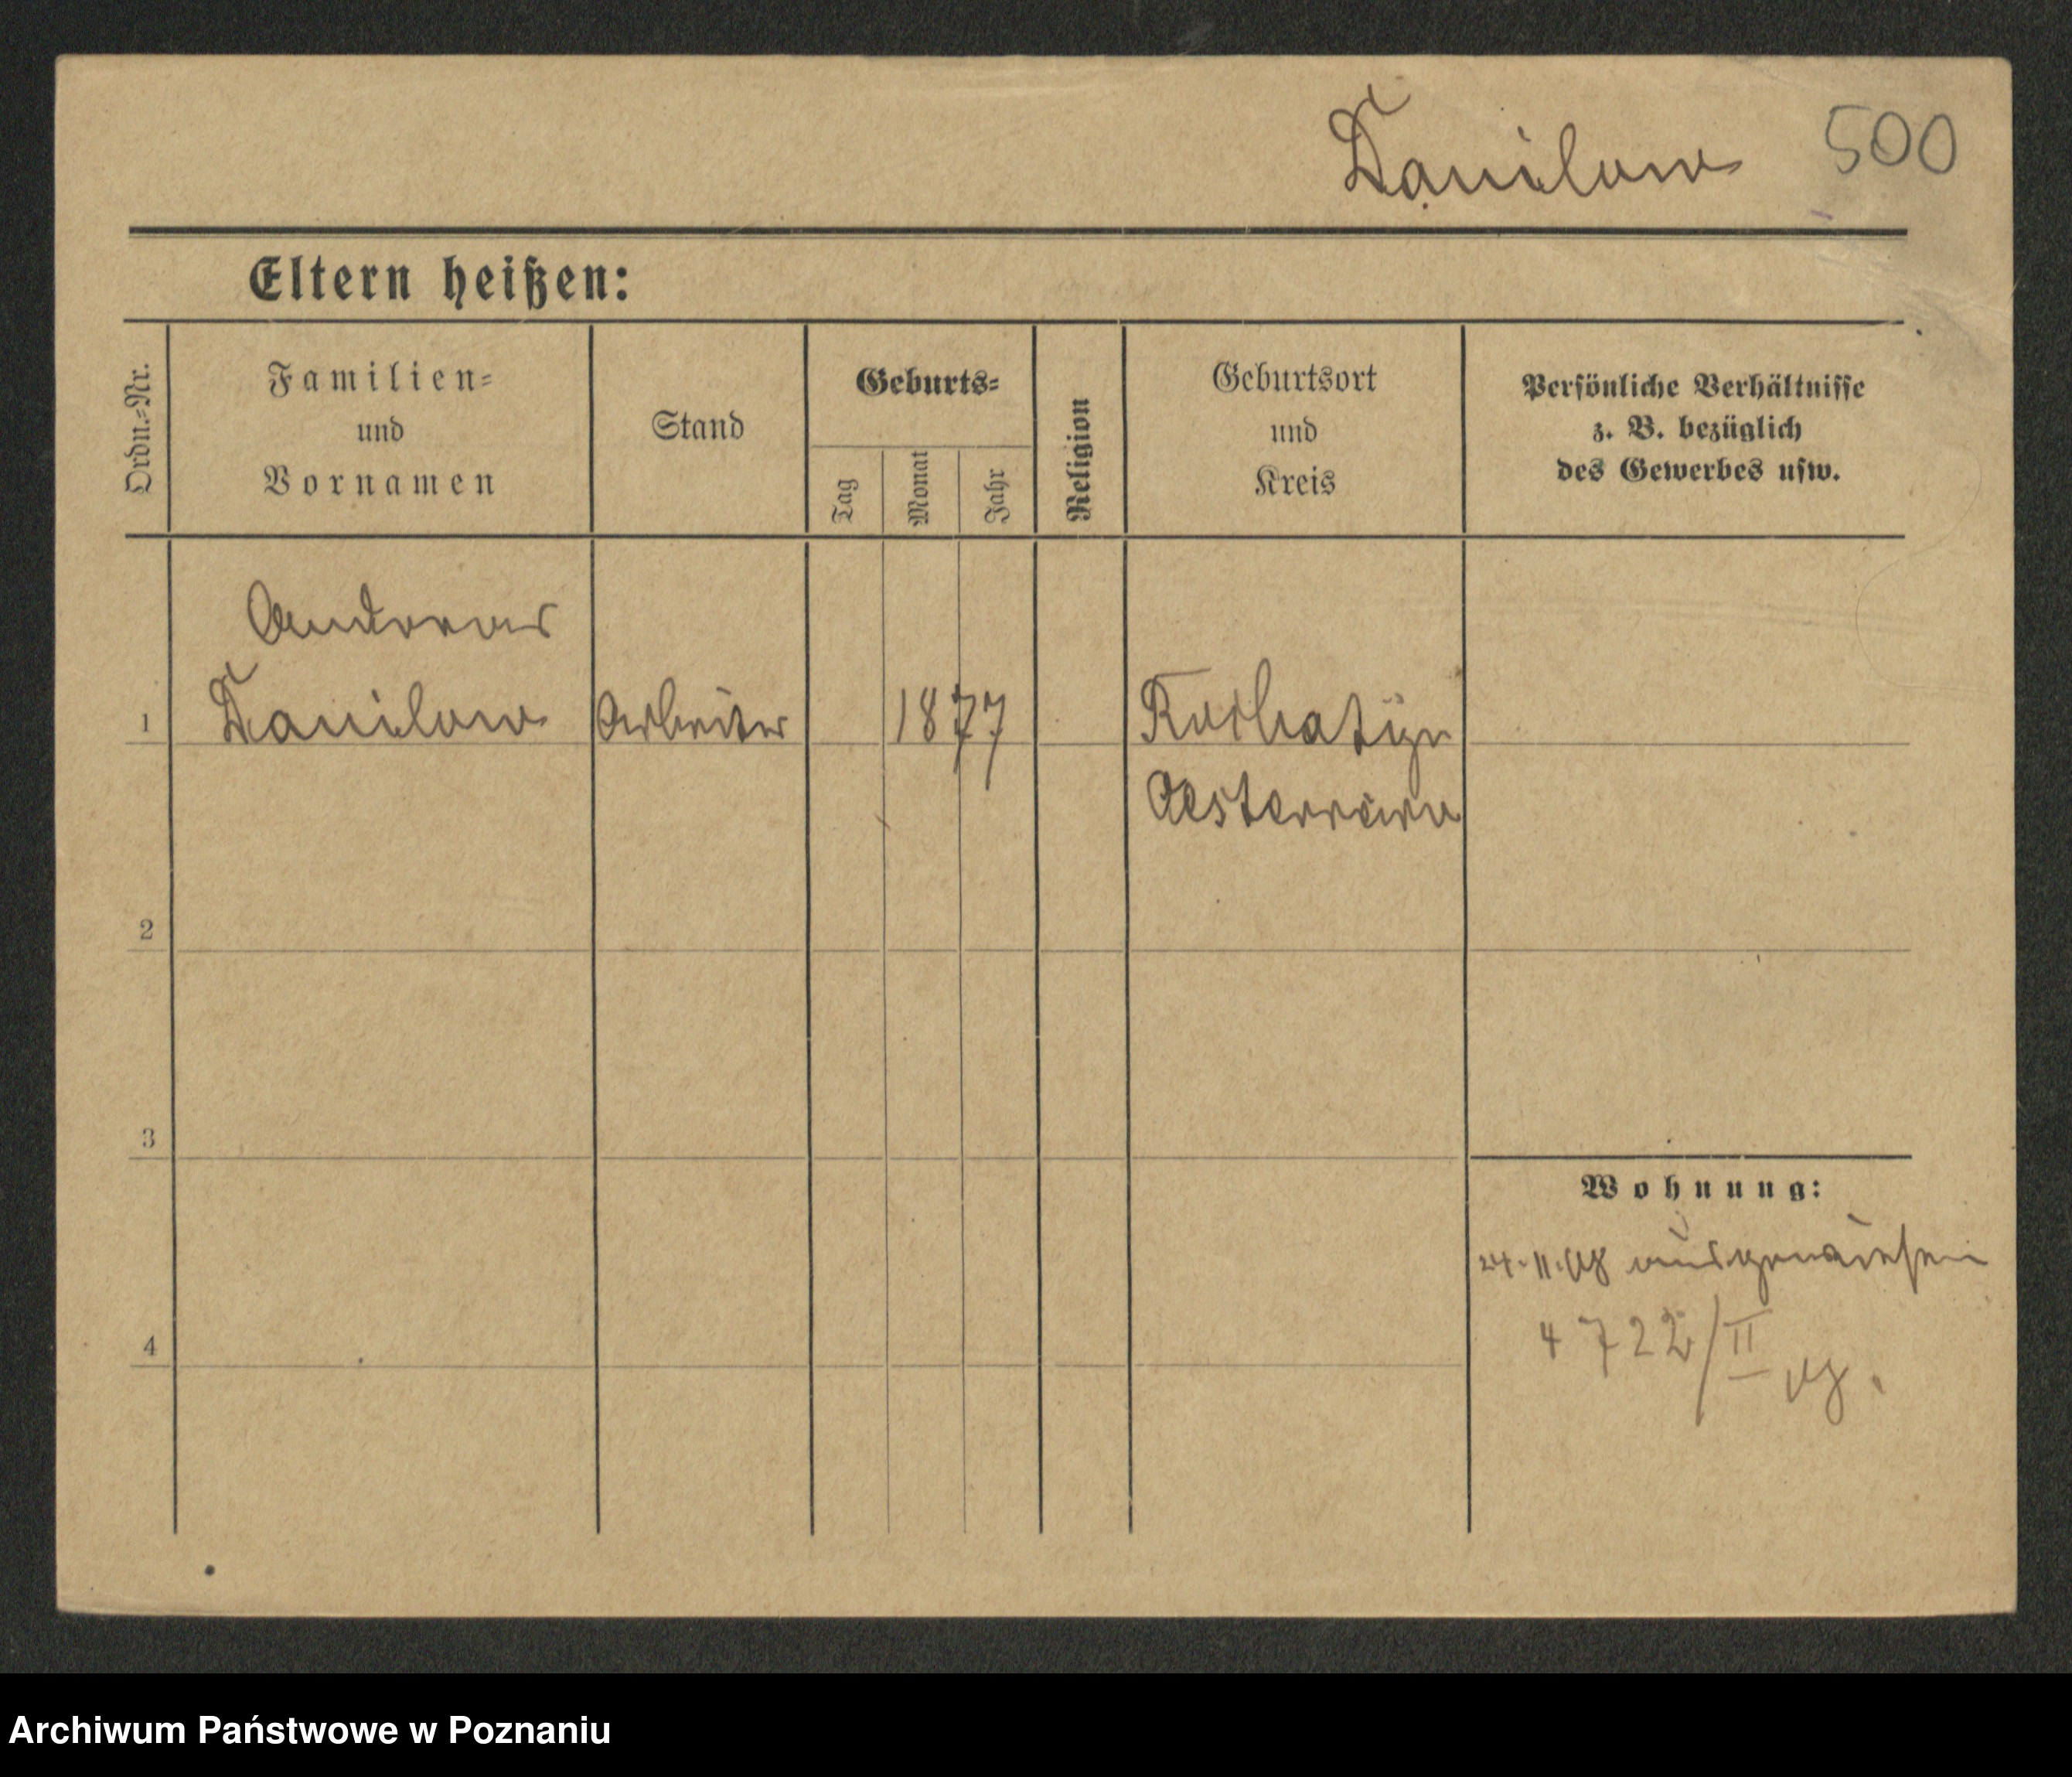 Danilow 500
Eltern heißen:
Ordn.=Nr.
Familien=
und
Vornamen
Stand
Geburts=
Tag
Monat
Jahr
Religion
Geburtsort
und
Kreis
Persönliche Verhältnisse
z. B. bezüglich
des Gewerbes usw.
Andreas
1 Danilow Arbeiter 1877 Rohatyn
Oesterreich
2
3
Wohnung:
ausgewiesen
4722/II
4
Archiwum Państwowe w Poznaniu